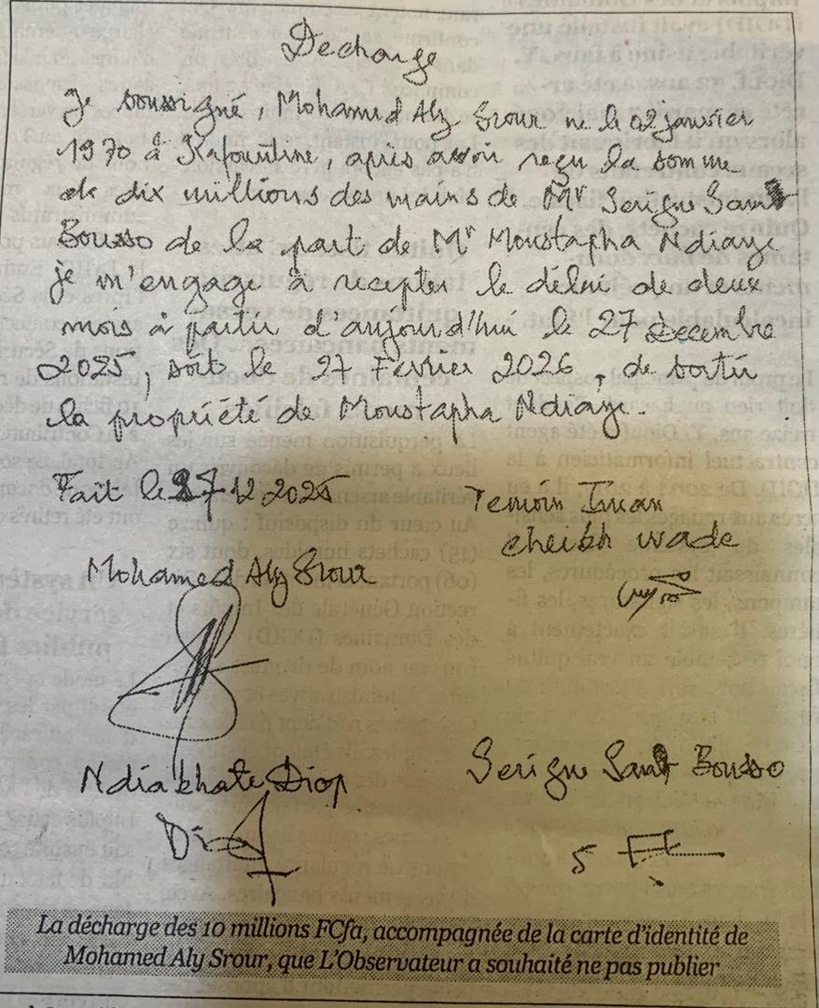 Decharge
Je soussigné, Mohamed Aly Srour ne le 02 janvier
1970 à Kafountine, après avoir reçu la somme
de dix millions des mains de Mr Serigne Saw
Bousso de la part de Mr Moustapha Ndiaye
je m'engage à recepter le délai de deux
mois à partir d'aujourd'hui le 27 decembre
2025, soit le 27 Fevrier 2026, de sortir
la propriété de Moustapha Ndiaye.
Fait le 27-12 2025
Temoin Iman
cheikh wade
Mohamed Aly Srour
Ndiakhate Diop
Serigne Bousso
La décharge des 10 millions FCfa, accompagnée de la carte d'identité de
Mohamed Aly Srour, que L'Observateur a souhaité ne pas publier